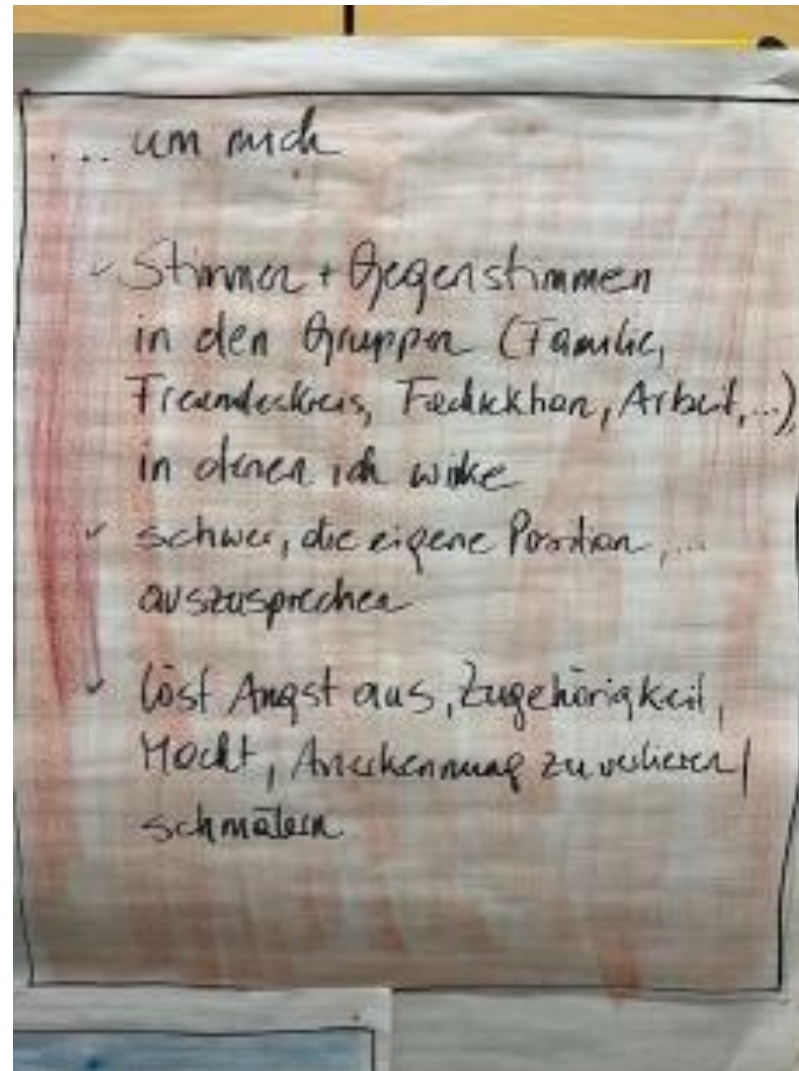 .... um mich
✓ Stimmen + Gegenstimmen
in den Gruppen (Familie,
Freundeskreis, Arbeit, ...),
in denen ich wirke
✓ schwer, die eigene Position, ...
auszusprechen
✓ löst Angst aus, Zugehörigkeit,
Macht, Anerkennung zu verlieren/
schmälern